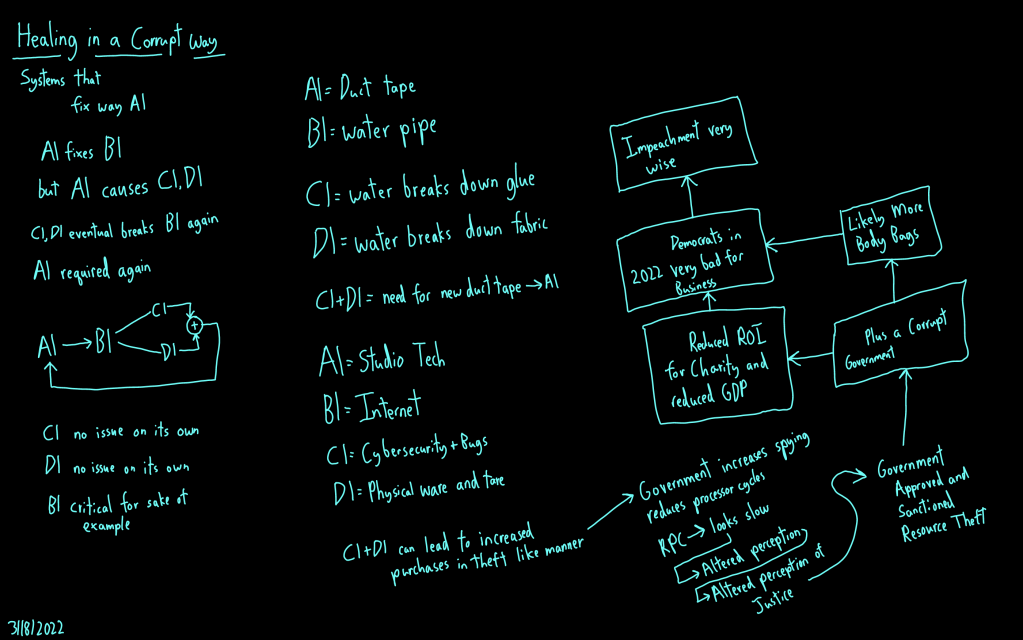 Healing in a Corrupt Way
Systems that
fix way A1
A1 fixes B1
but A1 causes C1,D1
C1,D1 eventual breaks B1 again
A1 required again
A1
B1
C1
+
D1
C1 no issue on its own
D1 no issue on its own
B1 critical for sake of
example
3/18/2022
A1= Duct tape
B1= water pipe
C1= water breaks down glue
D1= water breaks down fabric
C1+D1= need for new duct tape → A1
A1= Studio Tech
B1= Internet
C1= Cybersecurity + Bugs
D1= Physical ware and tare
C1+D1 can lead to increased
purchases in theft like manner
Government increases spying
reduces processor cycles
RPC → looks slow
Altered perception
Altered perception of
Justice
Government
Approved and
Sanctioned
Resource Theft
Plus a Corrupt
Government
Likely More
Body Bags
Reduced ROI
for Charity and
reduced GDP
Democrats in
2022 very bad for
Business
Impeachment very
wise